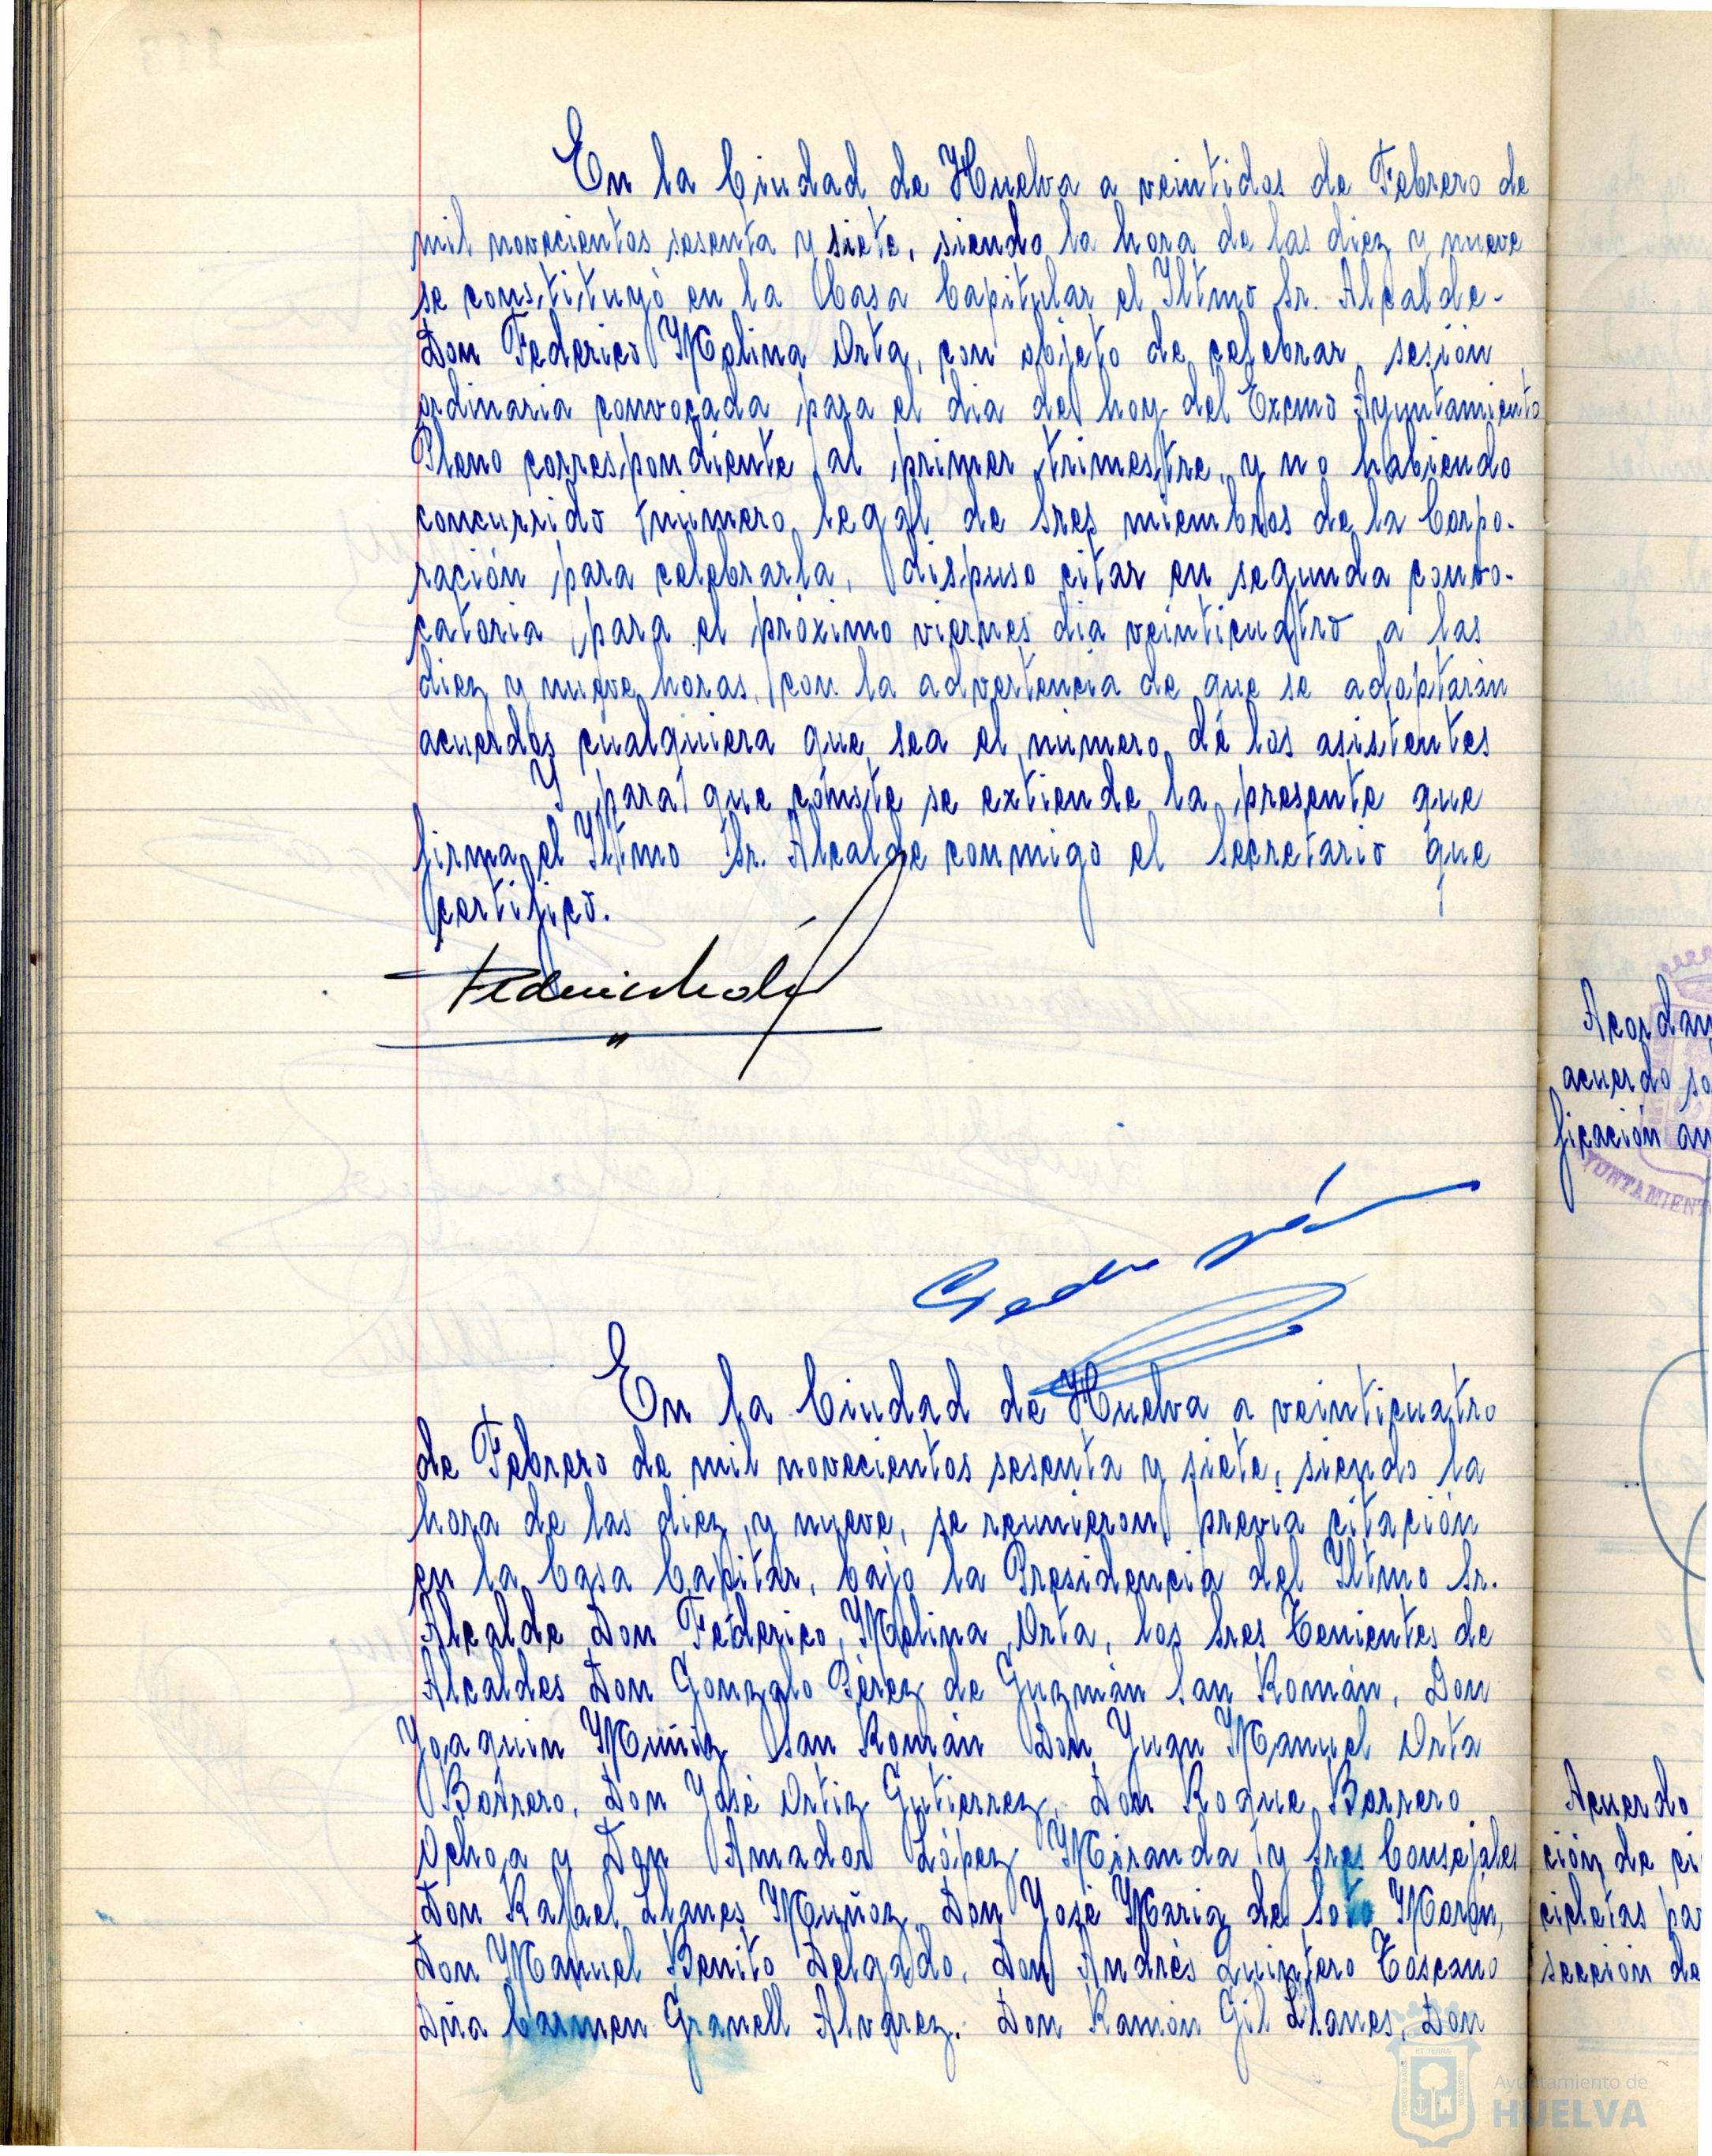 En la Ciudad de Huelva a veintidos de Febrero de
mil novecientos sesenta y siete, siendo la hora de las diez y nueve
se constituyó en la Casa Capitular el Iltmo Sr. Alcalde-
Don Federico Molina Orta, con objeto de celebrar sesión
ordinaria convocada para el dia de hoy del Excmo Ayuntamiento
Pleno correspondiente al primer trimestre, y no habiendo
concurrido número legal de Sres miembros de la Corpo-
ración para celebrarla, dispuso citar en segunda convo-
catoria para el próximo viernes dia veinticuatro a las
diez y nueve horas, con la advertencia de que se adoptarán
acuerdos cualquiera que sea el número de los asistentes
Y para que conste se extiende la presente que
firma el Iltmo Sr. Alcalde conmigo el Secretario que
certifico.
En la Ciudad de Huelva a veinticuatro
de Febrero de mil novecientos sesenta y siete, siendo la
hora de las diez y nueve, se reunieron previa citación
en la Casa Capitar, bajo la Presidencia del Iltmo Sr.
Alcalde Don Federico Molina Orta, los Sres Tenientes de
Alcaldes Don Gonzalo Pérez de Guzmán San Román, Don
Joaquin Muñiz San Román Don Juan Manuel Orta
Borrero, Don José Ortiz Gutierrez, Don Roque Barrero
Ochoa y Don Amador López Miranda y Sres Consejales
Don Rafael Llanes Muñoz, Don José Maria de Soto Morón,
Don Manuel Benito Delgado, Don Andrés Quintero Toscano
Dña Carmen Granell Alvarez. Don Ramón Gil Llanes, Don
Acordan
acuerdo so
ficación an
YUNTAMIENT
Acuerdo
ción de ci
cicletas pa
sección de
Ayuntamiento de
HUELVA